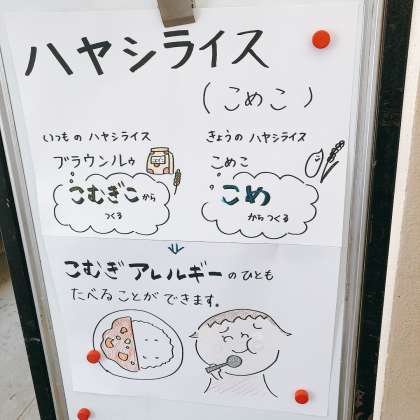 ハヤシライス
(こめこ)
いつものハヤシライス
ブラウンルゥ
こむぎこから
つくる
きょうのハヤシライス
こめこ
こめ
からつくる
こむぎアレルギーのひとも
たべることができます。